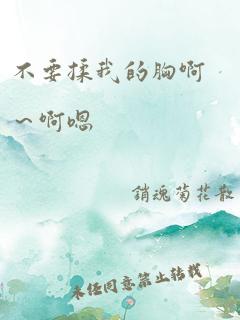 不要揉我的胸啊
～啊嗯
銷魂菊花散
未经同意禁止转载